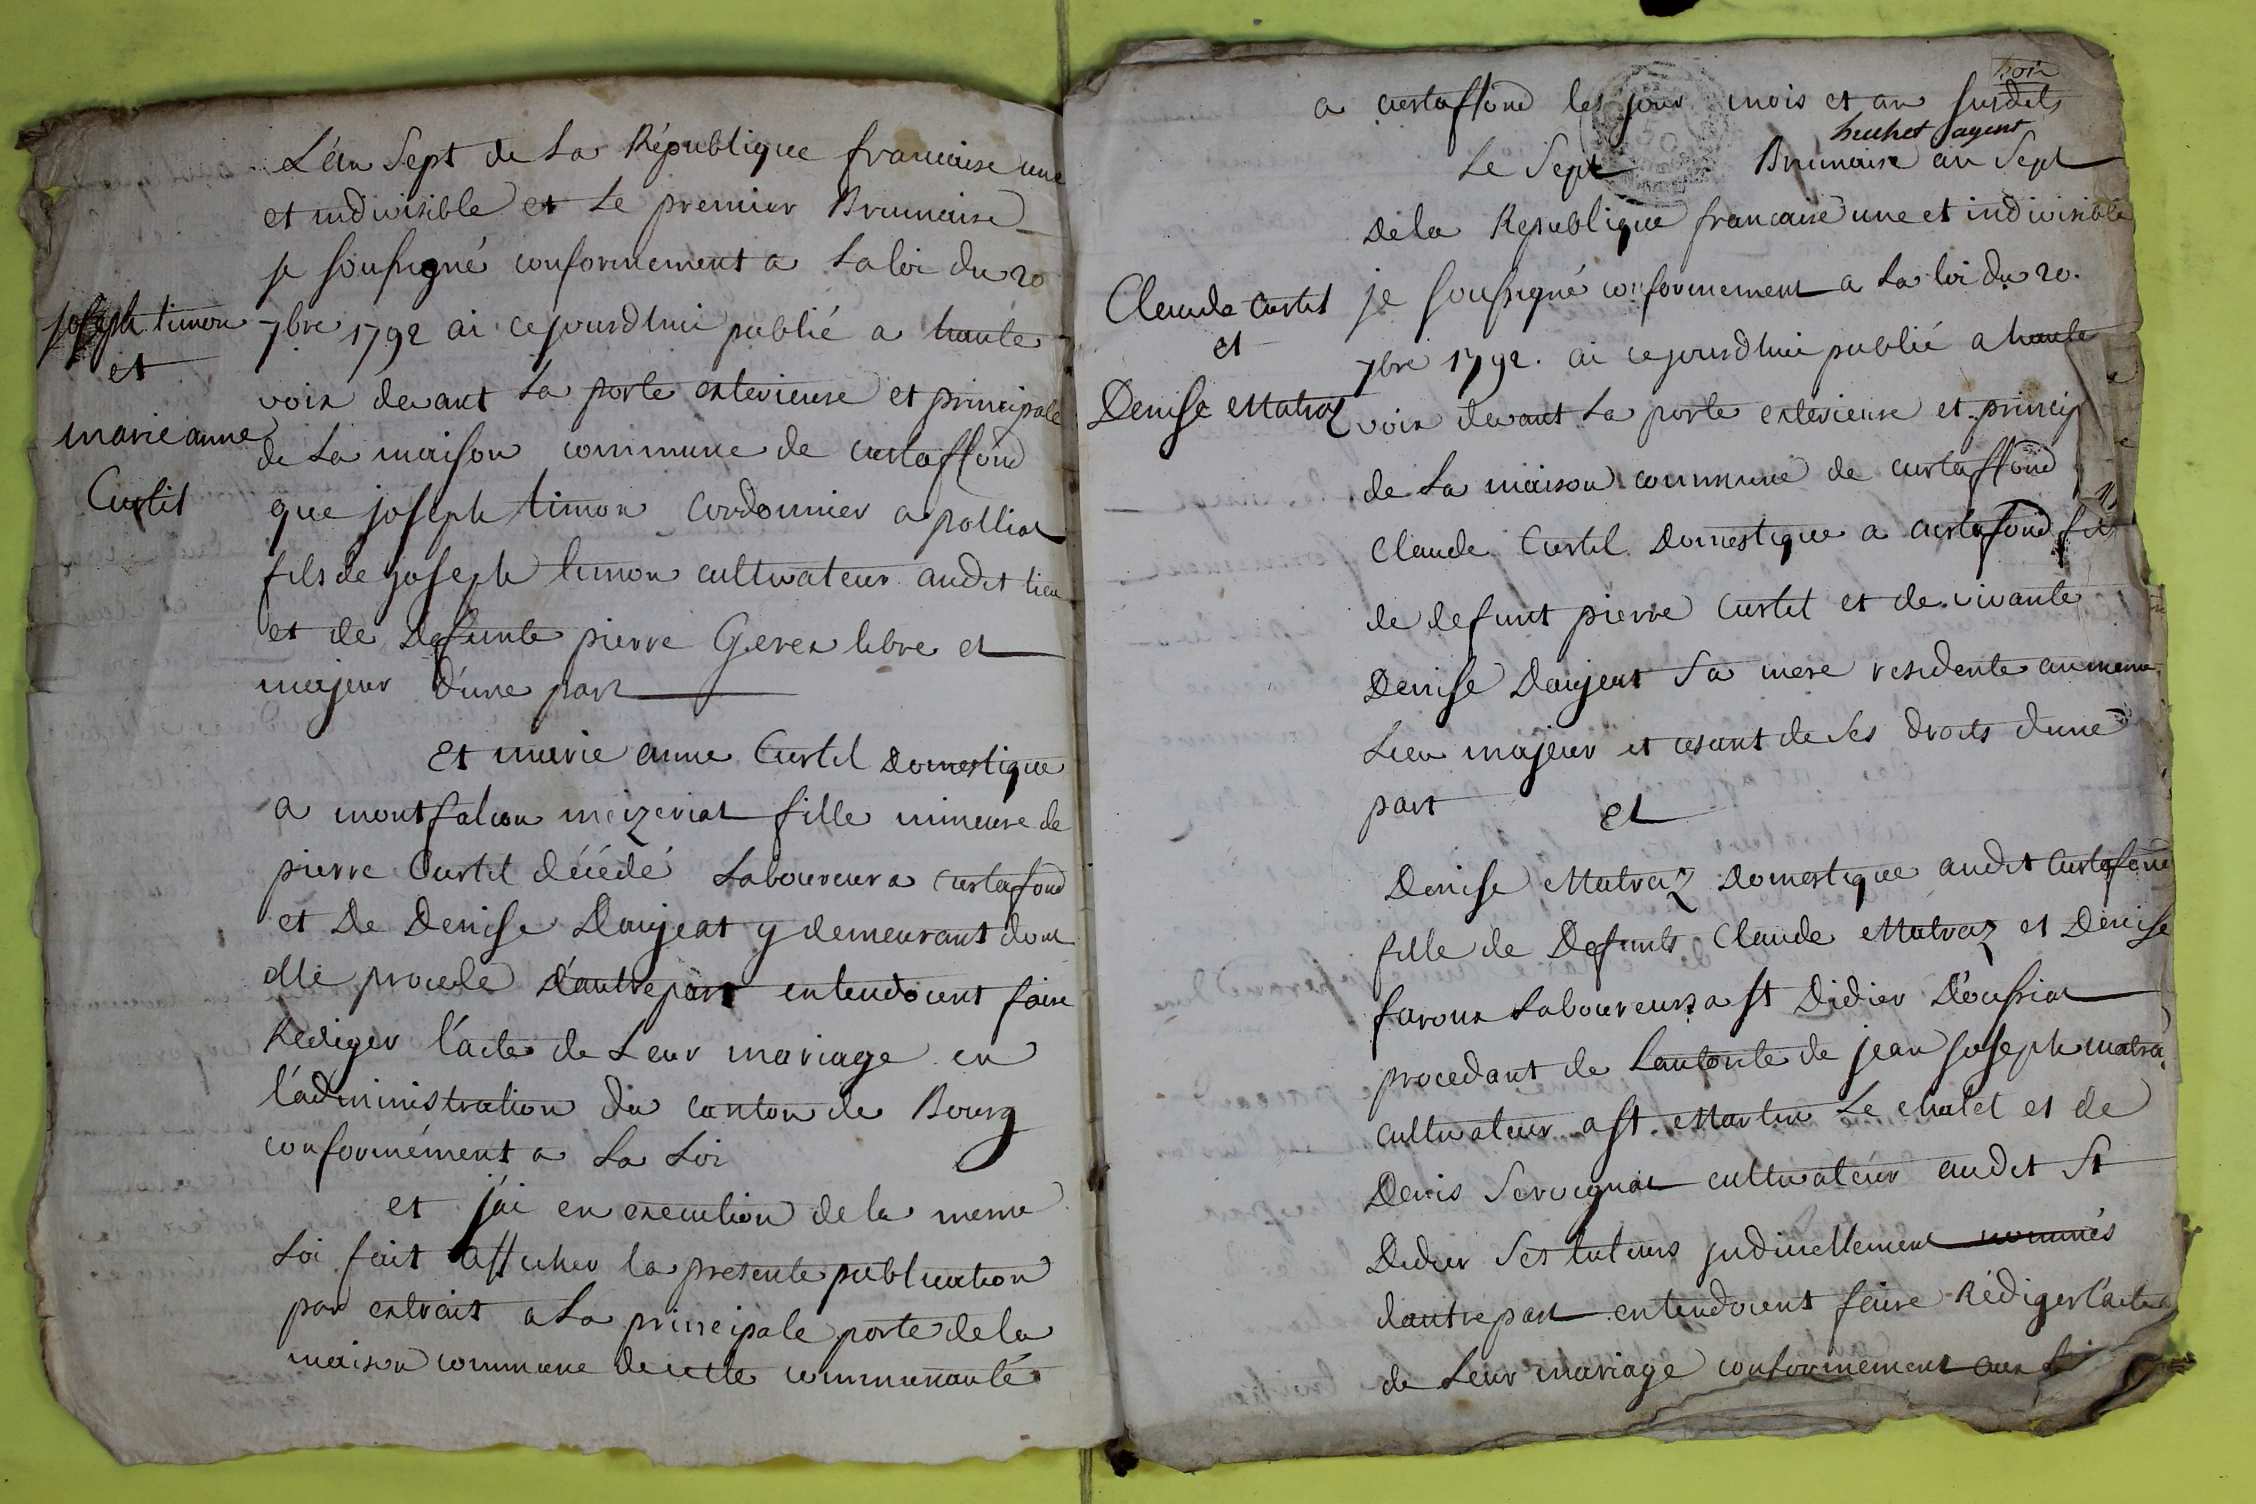 L'an Sept de La République francaise une
et indivisible et Le premier Brumaire
je soussigné conformement a La loi du 20
7bre 1792 ai cejourdhui publié a haute
voix devant La porte exterieure et principale
de La maison commune de curtaffond
que joseph timon Cordonnier a polliat
fils de joseph timon cultivateur audit lieu
et de Defunte pierre Gerex libre et
majeur d'une part
joseph timon
et
marie anne
Curtil
Et marie anne Curtil Domestique
a montfalcon meizeriat fille mineure de
pierre Curtil décédé Laboureur a curtafond
et De Denise Daujeat y demeurant dont
elle procede d'autre part entendoient faire
Rediger l'acte de Leur mariage en
l'administration du canton de Bourg
conformément a La Loi
et j'ai en execution de la meme
Loi fait afficher la presente publication
par extrait a La principale porte de la
maison commune de cette communauté
a curtaffond les jour mois et an susdits
huchet agent
Le Sept Brumaire an Sept
De la Republique francaise une et indivisible
je soussigné conformement a La loi du 20.
7bre 1792. ai cejourdhui publié a haute
voix devant La porte exterieure et princip
de La maison commune de curtaffond
Claude Curtil Domestique a curtafond fils
de defunt pierre Curtil et de vivante
Denise Daujeat Sa mere residente au meme
Lieu majeur et usant de Ses droits dune
part et
Claude Curtil
et
Denise Matraz
Denise Matraz Domestique audit Curtafond
fille de Defunts Claude Matraz et Denise
faroux Laboureurs a St Didier D'oussiat
procedant de Lautorite de jean joseph matra
cultivateur a St. Martin Le chatel et de
Denis Servignat cultivateur audit St
Didier Ses tuteurs judiciellement nommés
dautre part entendoient faire Rédiger l'acte
de Leur mariage conformement aux